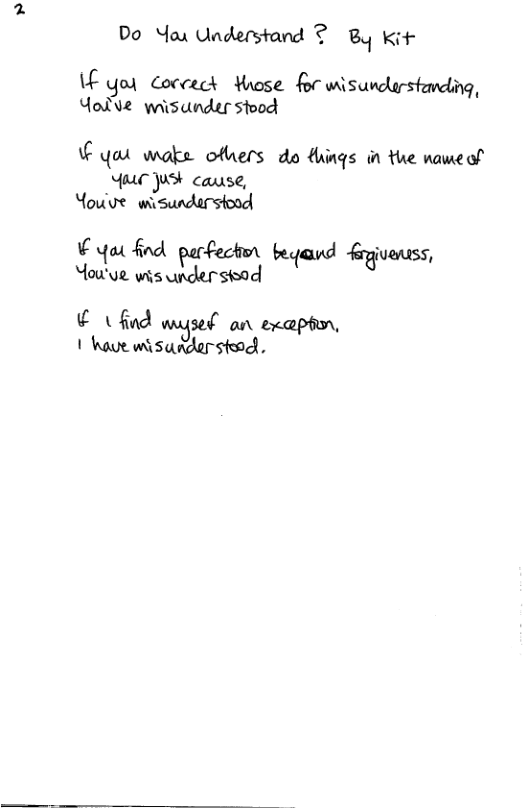 2
Do You Understand? By Kit
If you correct those for misunderstanding,
You've misunderstood
If you make others do things in the name of
your just cause,
You've misunderstood
If you find perfection beyond forgiveness,
You've misunderstood
If I find myself an exception,
I have misunderstood.